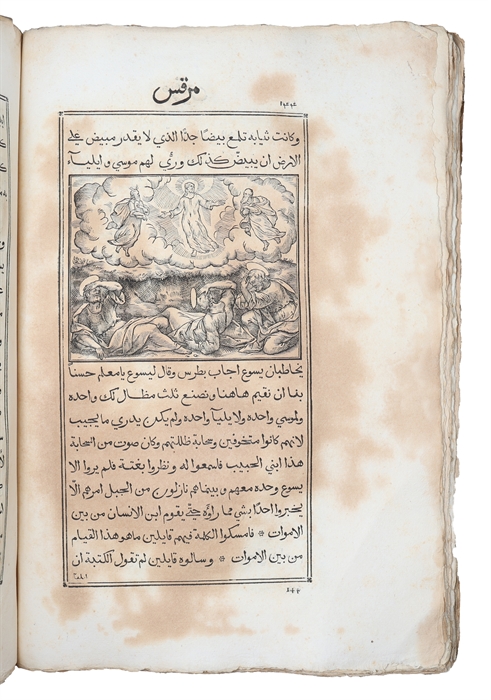 مرقس
وكانت ثيابه تلمع بيضًا جدًا الذي لا يقدر مبيض على
الارض ان يبيض كذلك ورُي لهم موسي وايليا
يخاطبان يسوع اجاب بطرس وقال ليسوع يا معلم حسنًا
بنا ان نقيم هاهنا ونصنع ثلث مظال لك واحده
ولموسي واحده ولايليا واحده ولم يكن يدري ما يجيب
لانهم كانوا متخوفين وسحابة ظللتهم وكان صوت من السحابة
هذا ابني الحبيب فاسمعوا له ونظروا بغتة فلم يروا الا
يسوع وحده معهم وبينما هم نازلون من الجبل امرهم الّا
يخبروا احدًا بشي مما راؤه حتي يقوم ابن الانسان من بين
الاموات * فامسكوا الكلمة فيهم قايلين ما هو هذا القيام
من بين الاموات * وسالوه قايلين لم تقول الكتبة ان